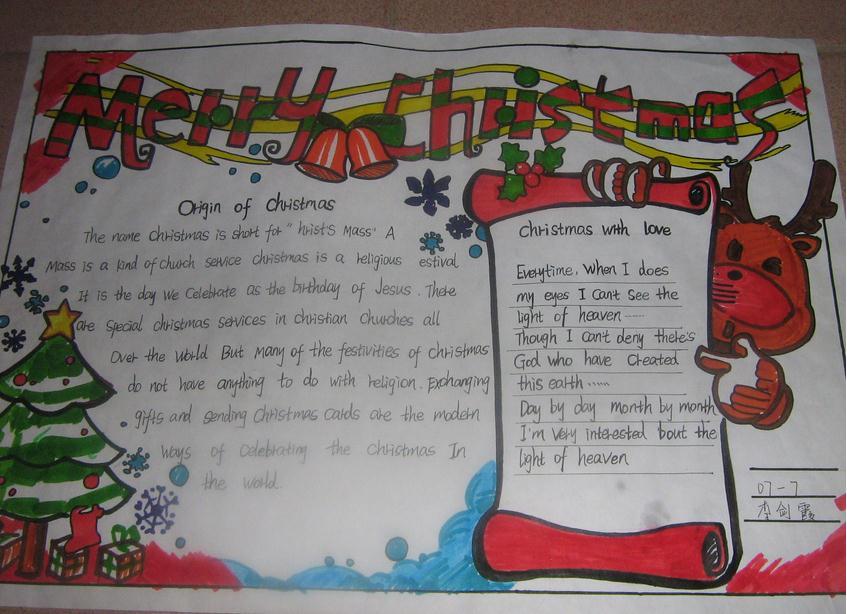 Merry Christmas
Origin of Christmas
The name Christmas is short for "hrist's Mass" A
Mass is a kind of church service christmas is a religious estival
It is the day we celebrate as the birthday of Jesus. There
are special christmas services in christian Churches all
Over the World But many of the festivities of christmas
do not have anything to do with religion. Exchanging
gifts and sending Christmas Cards are the modern
Ways of Celebrating the Christmas In
the world.
Christmas with love
Everytime, When I does
my eyes I Can't See the
light of heaven ......
Though I can't deny there's
God who have Created
this earth .....
Day by day month by month
I'm very interested 'bout the
light of heaven
07-7
李剑霞